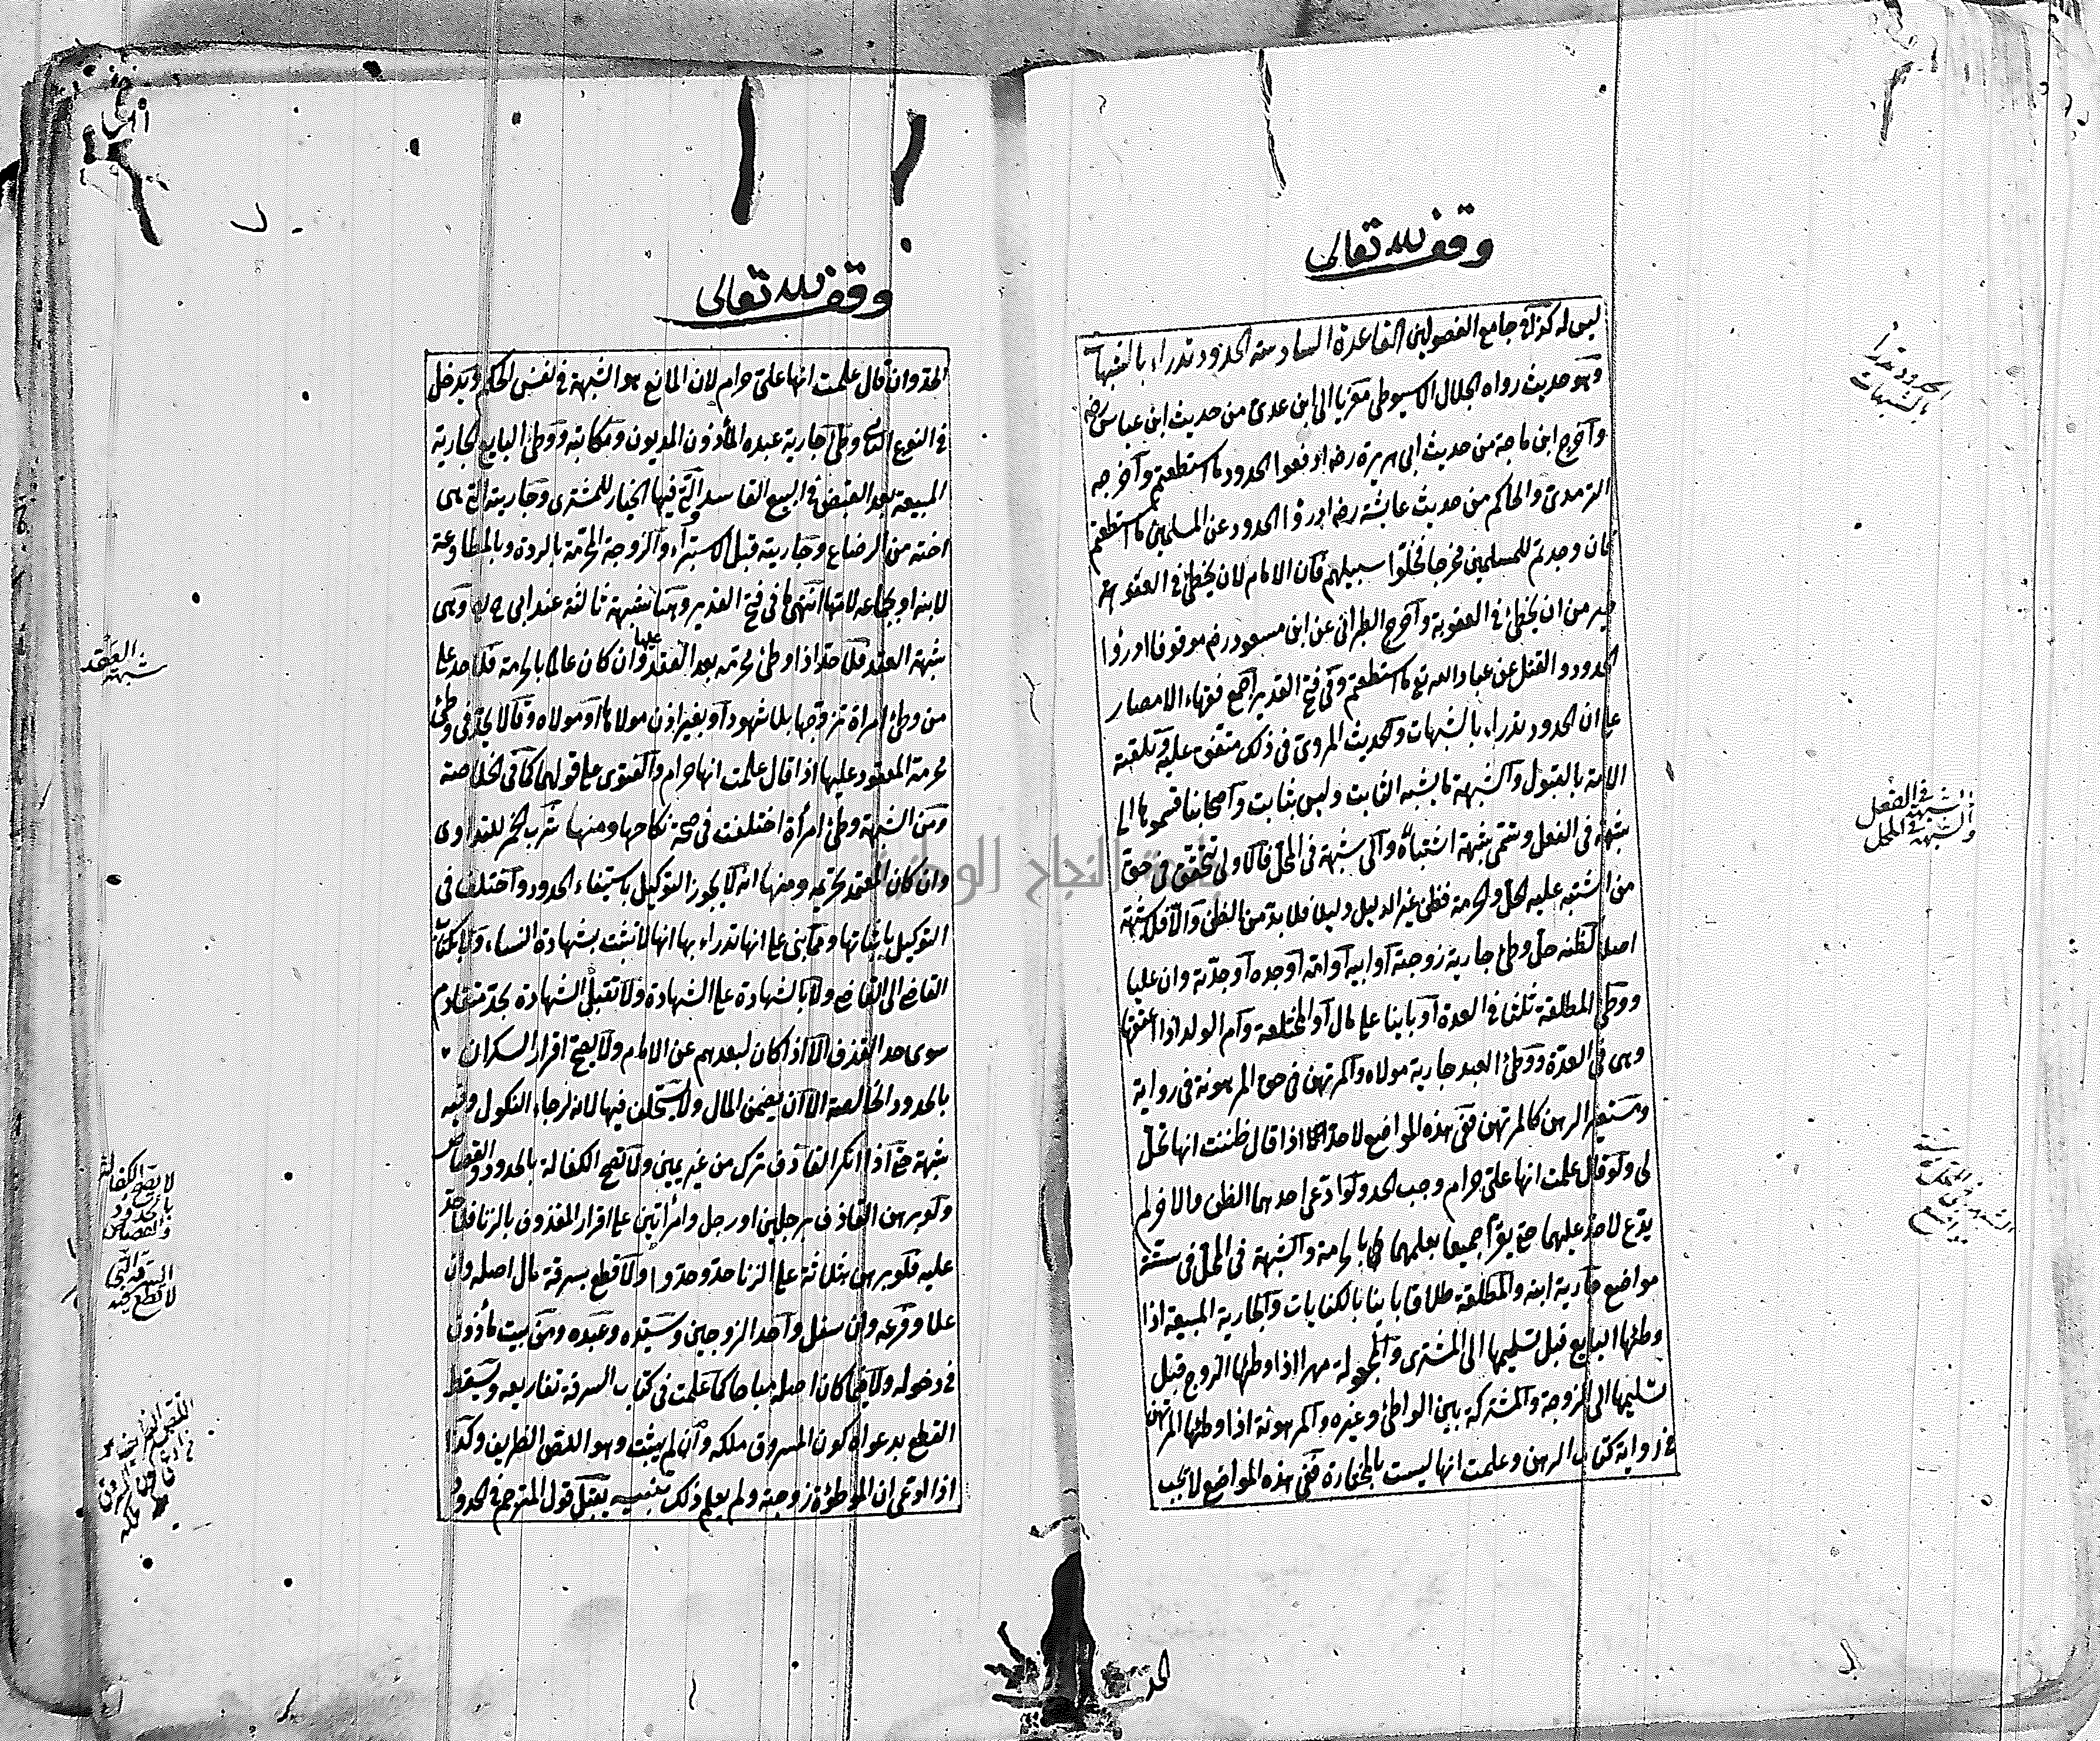 وقف لله تعالى
ليس له كذا في جامع الفصولين القاعدة السادسة الحدود تدراء بالشبهات
وهو حديث رواه الجلال الاسيوطي معزيا الى ابن عدي من حديث ابن عباس رضه
وآخرج ابن ماجة من حديث ابي هريرة رضه ادفعوا الحدود ما استطعتم وآخرجه
الترمذي والحاكم من حديث عايشة رضه ادرؤا الحدود عن المسلمين ما استطعتم
فان وجدتم للمسلمين مخرجا فخلوا سبيلهم فان الامام لان يخطئ في العفو
خير من ان يخطئ في العقوبة وآخرج الطبراني عن ابن مسعود رضه موقوفا ادرؤا
الحدود والقتل عن عباد الله تع ما استطعتم وفي فتح القدير آجمع فقهاء الامصار
على ان الحدود تدراء بالشبهات والحديث المروي في ذلك متفق عليه وتلقته
الامة بالقبول والشبهة ما يشبه الثابت وليس بثابت وآصحابنا قسموها الى
شبهة في الفعل وتسمى شبهة اشتباه والى شبهة في المحل فالاولى تتحقق في حق
من اشتبه عليه الحل والحرمة فظن غير الدليل دليلا فلا بد من الظن والا فلا شبهة
اصلا كظنه حل وطئ جارية زوجته آو ابيه آو امه آو جده آو جدته وان عليا
ووطئ المطلقة ثلثا في العدة آو باينا على مال آو المختلعة وآم الولد اذا اعتقها
وهي في العدة ووطئ العبد جارية مولاه والمرتهن في حق المرهونة في رواية
ومستعير الرهن كالمرتهن ففي هذه المواضع لا حد اذا قال ظننت انها تحل
لي ولو قال علمت انها على حرام وجب الحد ولو ادعى احدهما الظن والاخر لم
يدع لا حد عليهما حتى يقرا جميعا بعلمهما بالحرمة والشبهة في المحل في ستة
مواضع جارية ابنه والمطلقة طلاقا باينا بالكنايات والجارية المبيعة اذا
وطئها البايع قبل تسليمها الى المشتري والمجعولة مهرا اذا وطئها الزوج قبل
تسليمها الى الزوجة والمشتركة بين الواطئ وغيره والمرهونة اذا وطئها المرتهن
في رواية كتاب الرهن وعلمت انها ليست بالمختارة ففي هذه المواضع لا يجب
الحد
الحدود تدرأ
بالشبهات
الشبهة في الفعل
والشبهة في المحل
وقف لله تعالى
الحد وان قال علمت انها على حرام لان المانع هو الشبهة في نفس الحكم ويدخل
في النوع الثاني وطئ جارية عبده المأذون المديون ومكاتبه ووطئ البايع الجارية
المبيعة بعد القبض في البيع الفاسد والتي فيها الخيار للمشتري وجاريته التي هي
اخته من الرضاع وجاريته قبل الاستبراء والزوجة المحرمة بالردة وبالمطاوعة
لابنه او بجماعه لامها انتهى ما في فتح القدير وهنا شبهة ثالثة عند ابي ح وهي
شبهة العقد فلا حد اذا وطئ محرمه بعد العقد عليها وان كان عالما بالحرمة فلا حد على
من وطئ امرأة تزوجها بلا شهود آو بغير اذن مولاها آو مولاه وقالا يحد في وطئ
محرمة المعقود عليها اذا قال علمت انها حرام والفتوى على قولهما كما في الخلاصة
ومن الشبهة وطئ امرأة اختلفت في صحة نكاحها ومنها شرب الخمر للتداوي
وان كان المعتمد تحريمه ومنها انه لا يجوز التوكيل باستيفاء الحدود واختلف في
التوكيل باثباتها ومما بني على انها تدراء بها انها لا تثبت بشهادة النساء ولا بكتاب
القاضي الى القاضي ولا بالشهادة على الشهادة ولا تقبل الشهادة بحد متقادم
سوى حد القذف الا اذا كان لبعدهم عن الامام ولا يصح اقرار السكران
بالحدود الخالصة الا آن يضمن المال ولا يستحلف فيها لانه لرجاء النكول وفيه
شبهة حتى آذا انكر القاذف ترك من غير يمين ولا تصح الكفالة بالحدود والقصاص
ولو برهن القاذف برجلين او رجل وامرأتين على اقرار المقذوف بالزنا فلا حد
عليه فلو برهن بثلاثة على الزنا حد وحدوا ولا قطع بسرقة مال اصله وان
علا وفرعه وان سفل وآحد الزوجين وسيده وعبده ومن بيت مأذون
في دخوله ولا فيما كان اصله مباحا كما علمت في كتاب السرقة تفاريعه ويسقط
القطع بدعواه كون المسروق ملكه وآن لم يثبت وهو اللص الظريف وكذا
اذا ادعى ان الموطوءة زوجته ولم يعلم ذلك تنبيه يقبل قول المترجم في الحدود
شبهة العقد
لا تصح الكفالة
بالحدود
والقصاص
السرقة التي
لا قطع فيه